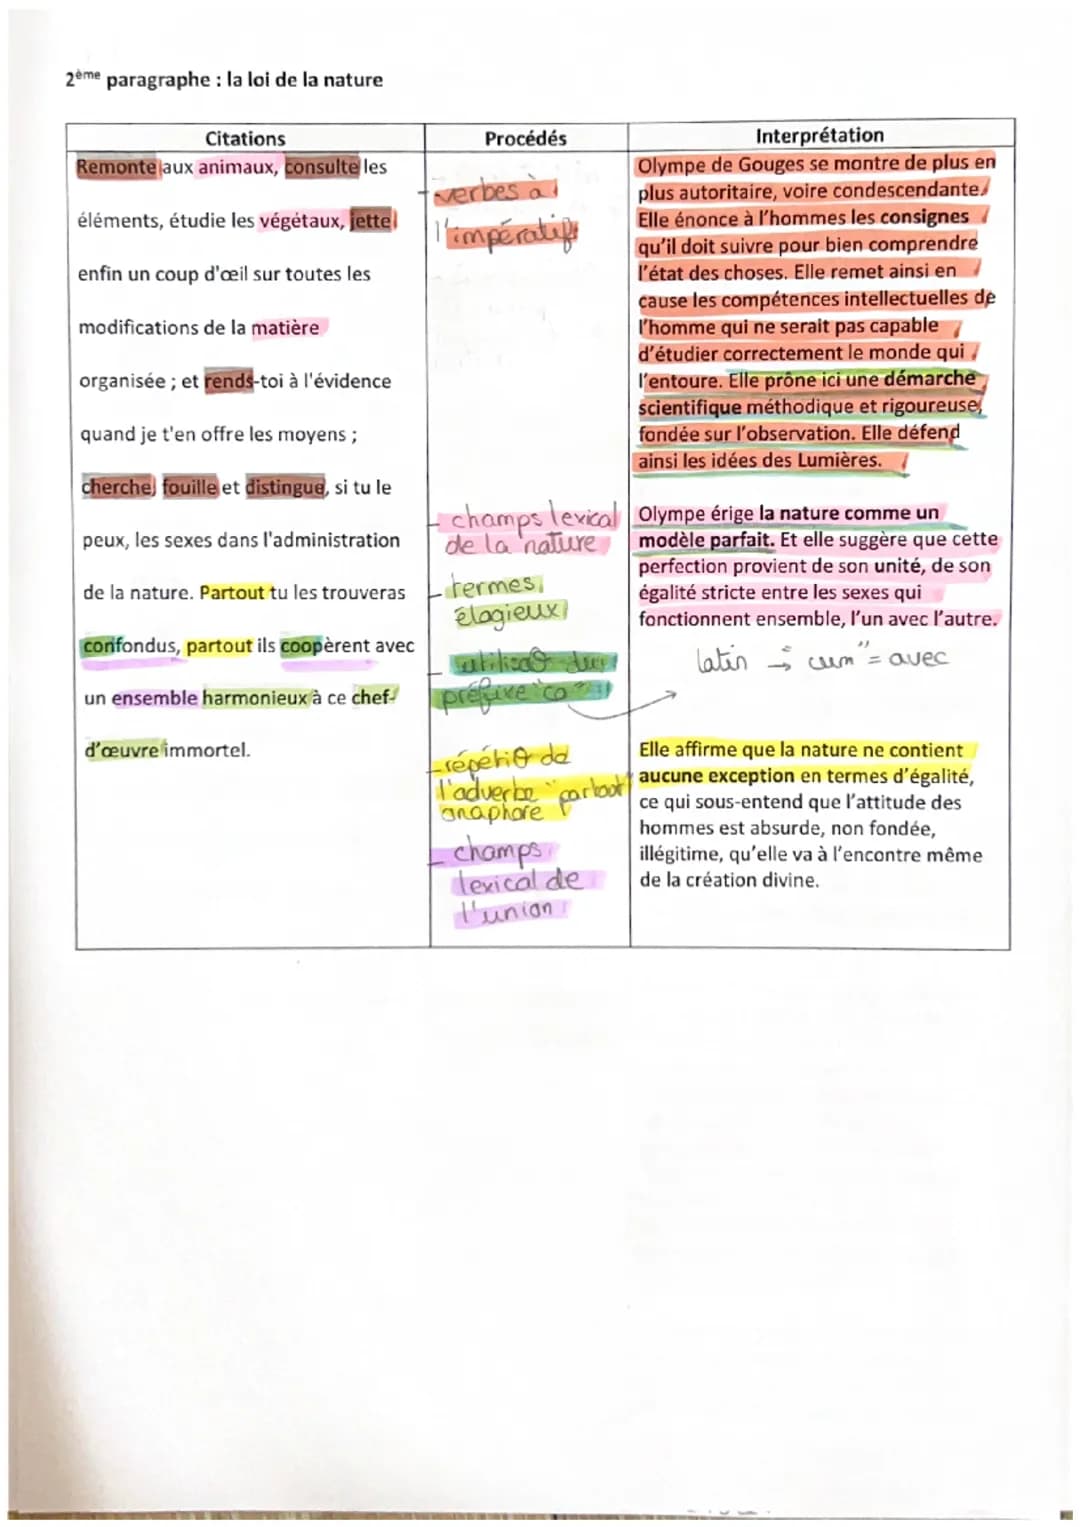 2ème paragraphe : la loi de la nature
Citations
Procédés
Interprétation
Remonte aux animaux, consulte les
éléments, étudie les végétaux, jette
enfin un coup d'œil sur toutes les
modifications de la matière
organisée ; et rends-toi à l'évidence
quand je t'en offre les moyens ;
cherche, fouille et distingue, si tu le
peux, les sexes dans l'administration
de la nature. Partout tu les trouveras
confondus, partout ils coopèrent avec
un ensemble harmonieux à ce chef-
d'œuvre immortel.
- verbes à
l'impératif
- champs lexical
de la nature
- termes
élogieux
- du
préfixe "co"
- de
l'adverbe "partout"
anaphore
- champs
lexical de
l'union
Olympe de Gouges se montre de plus en
plus autoritaire, voire condescendante.
Elle énonce à l'hommes les consignes
qu'il doit suivre pour bien comprendre
l'état des choses. Elle remet ainsi en
cause les compétences intellectuelles de
l'homme qui ne serait pas capable
d'étudier correctement le monde qui
l'entoure. Elle prône ici une démarche
scientifique méthodique et rigoureuse,
fondée sur l'observation. Elle défend
ainsi les idées des Lumières.
Olympe érige la nature comme un
modèle parfait. Et elle suggère que cette
perfection provient de son unité, de son
égalité stricte entre les sexes qui
fonctionnent ensemble, l'un avec l'autre.
latin → "cum" = avec
Elle affirme que la nature ne contient
aucune exception en termes d'égalité,
ce qui sous-entend que l'attitude des
hommes est absurde, non fondée,
illégitime, qu'elle va à l'encontre même
de la création divine.